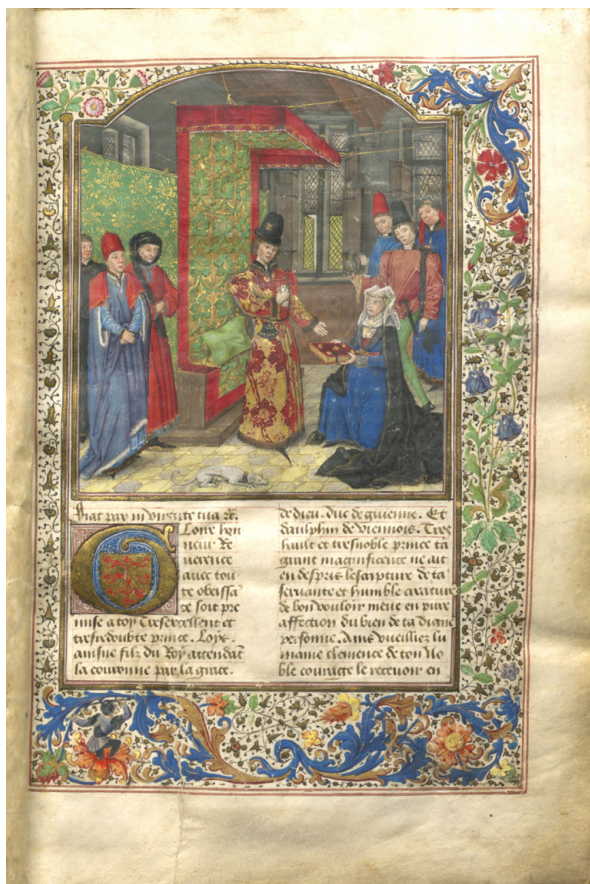 Fiat pax in virtute tua &c.
Gloire hon
neur Re
uerence
auec tou
te obeissa
ce soit pre
mise a toy Tresexcellent et
tresredoubte prince. Loys
ainsne filz du Roy attendāt
la couronne par la grace.
de dieu. duc de guienne. Et
daulphin de viennois. Tres
hault et tresnoble prince ta
grant magnificence ne ait
en despris lescripture de ta
seruante et humble creature
de bon vouloir meue en pure
affection du bien de ta digne
personne. Ains vueilliez lu
maine clemence de ton no
ble courage le receuoir en